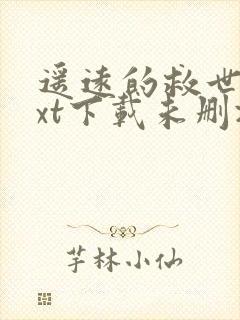 遥远的救世
xt下载未删
芋林小仙